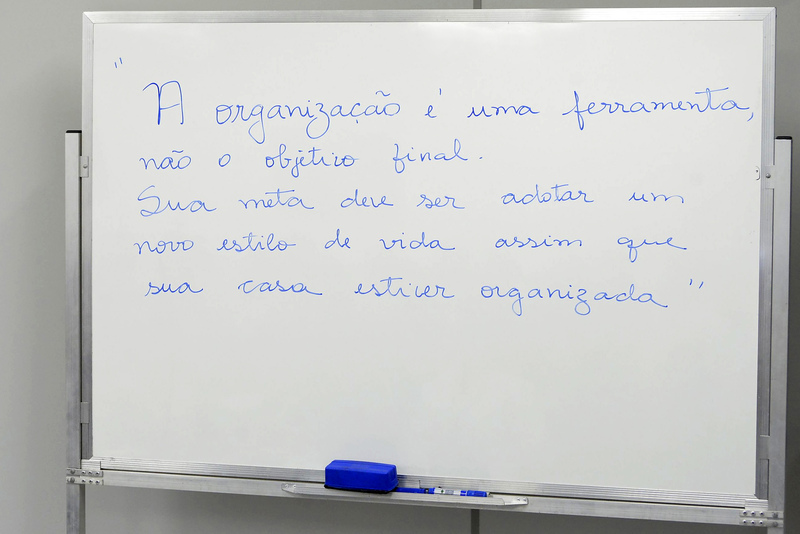 " A organização é uma ferramenta,
não o objetivo final.
Sua meta deve ser adotar um
novo estilo de vida assim que
sua casa estiver organizada "